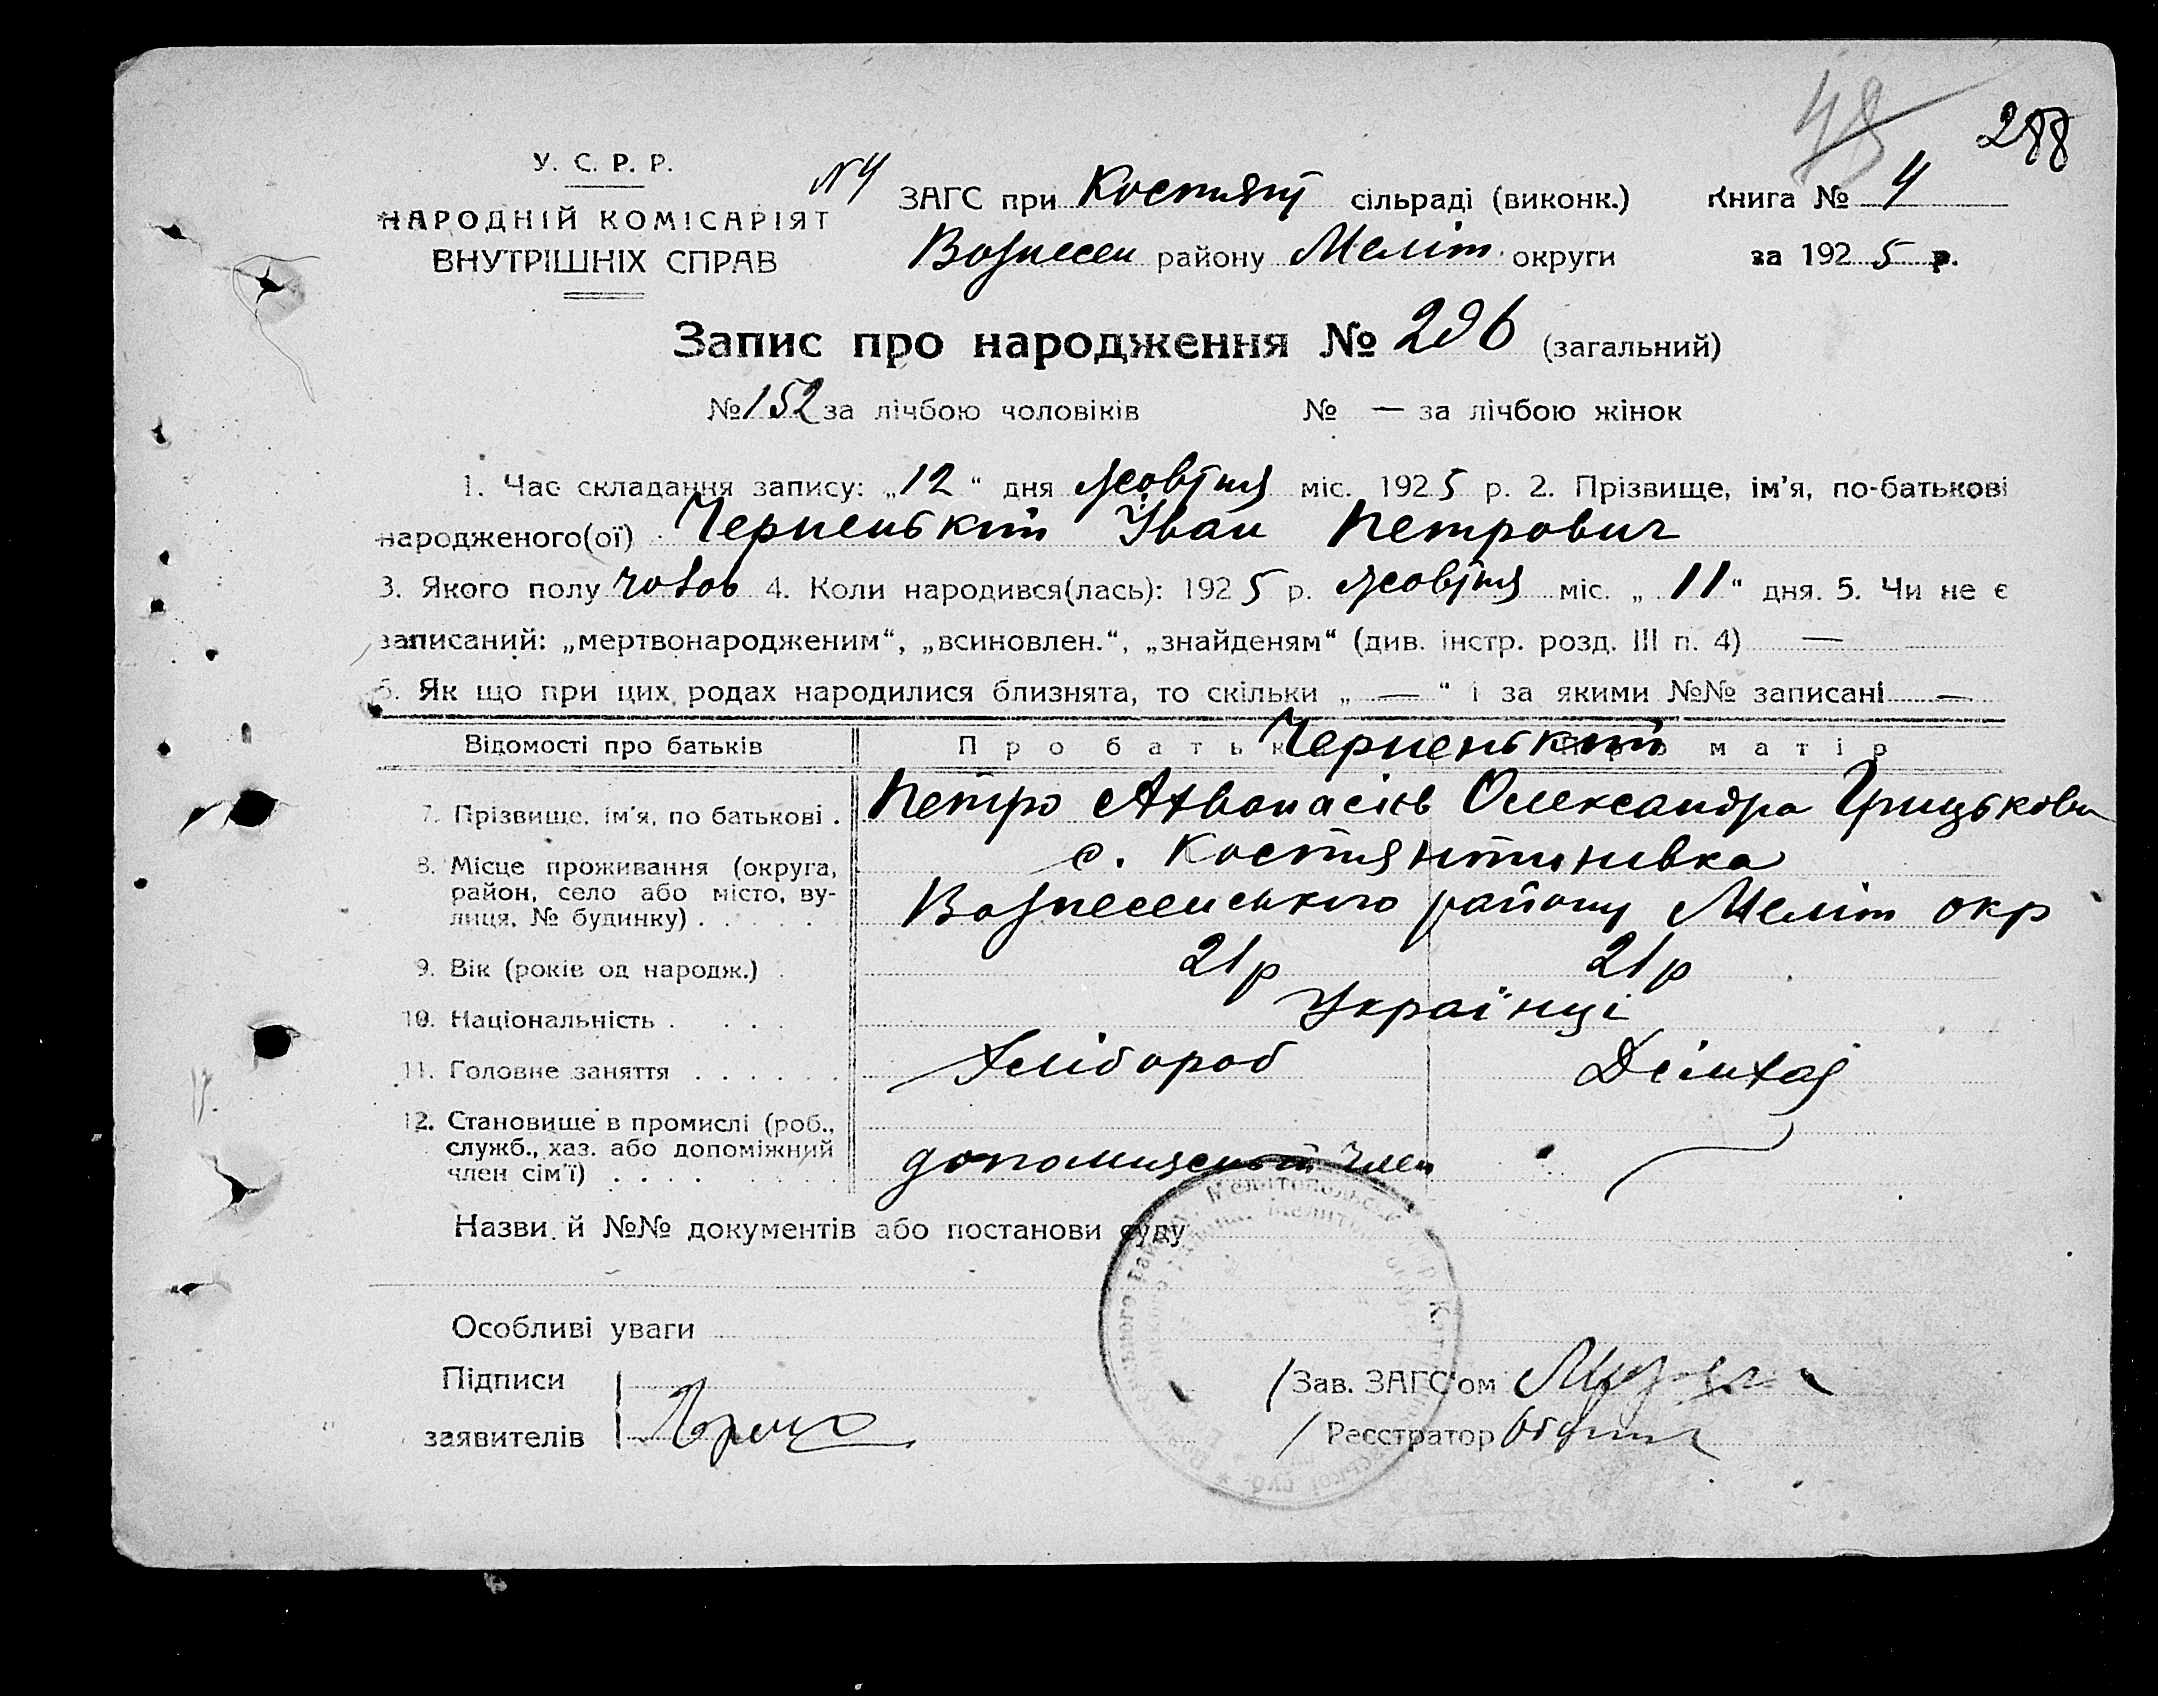 48 288
У. С. Р. Р.
НАРОДНІЙ КОМІСАРІЯТ
ВНУТРІШНІХ СПРАВ
№4 ЗАГС при Костянт сільраді (виконк.) Книга № 4
Вознесен району Меліт. округи за 1925 р.
Запис про народження № 296 (загальний)
№ 152 за лічбою чоловіків № — за лічбою жінок
1. Час складання запису: „12“ дня жовтня міс. 1925 р. 2. Прізвище, ім’я, по-батькові
народженого(ої) Черненький Іван Петрович
3. Якого полу чолов 4. Коли народився(лась): 1925 р. жовтня міс. „11“ дня. 5. Чи не є
записаний: „мертвонародженим“, „всиновлен.“, „знайденям“ (див. інстр. розд. III п. 4) —
6. Як що при цих родах народилися близнята, то скільки „ — “ і за якими №№ записані —
Відомості про батьків Про батьк Черненький матір
7. Прізвище, ім’я, по батькові . Петро Олександра Грицькова
8. Місце проживання (округа, с. Костянтинівка
район, село або місто, ву-
лиця, № будинку) . . . . . Вознесенського району Меліт окр
9. Вік (років од народж.) . 21 р 21 р
10. Національність . . . . Українці
11. Головне заняття . . . . . . Хлібороб
12. Становище в промислі (роб.,
служб., хаз. або допоміжний
член сім’ї) . . . . . . . . член
Назви й №№ документів або постанови суду
Особливі уваги
Підписи Зав. ЗАГС’ом
заявителів Реєстратор